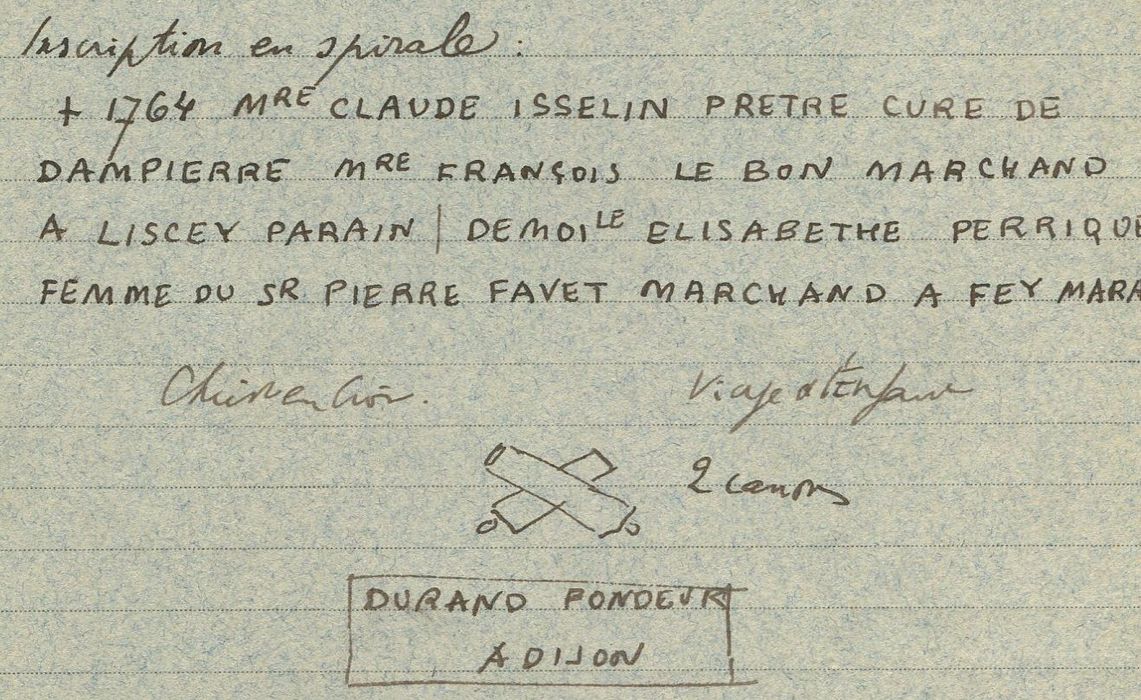 Inscription en spirale :
+ 1764 MRE CLAUDE ISSELIN PRETRE CURE DE
DAMPIERRE MRE FRANÇOIS LE BON MARCHAND
A LISCEY PARAIN | DEMOILE ELISABETHE PERRIQUE
FEMME DU SR PIERRE FAVET MARCHAND A FEY MARA
Christ en Croix. Vierge à l'Enfant
2 canons
DURAND FONDEUR
A DIJON